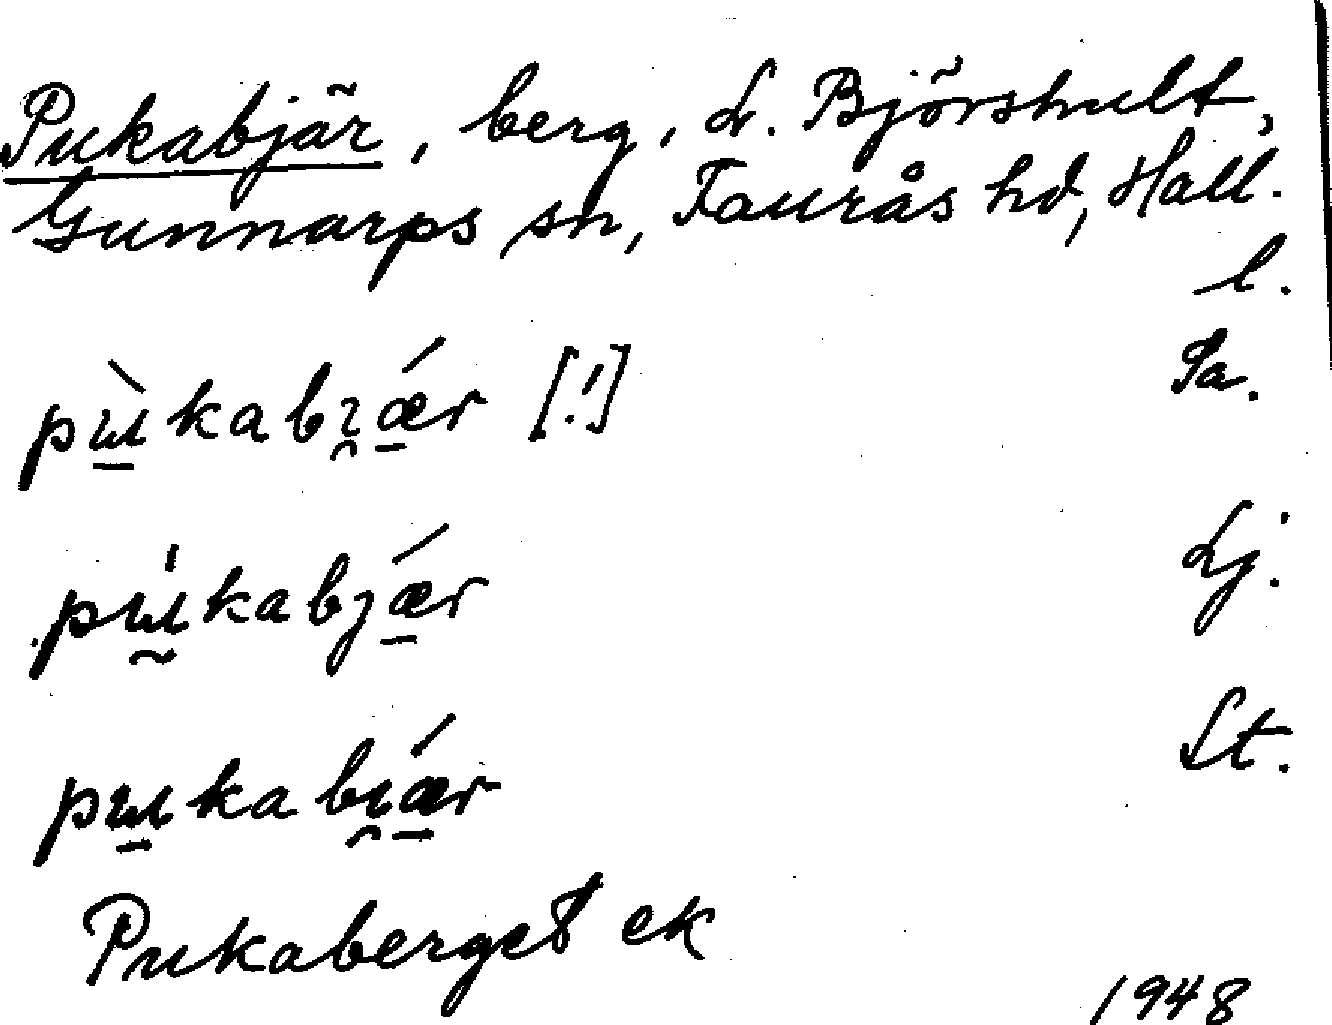 Pukabjär, berg, L. Björshult,
Gunnarps sn, Faurås hd, Hall.
l.
pùkabɪ̯ǽr [!] Sa.
pu̍kabjǽr Lj.
pukabɪ̯ǽr St.
Pukaberget ek
1948